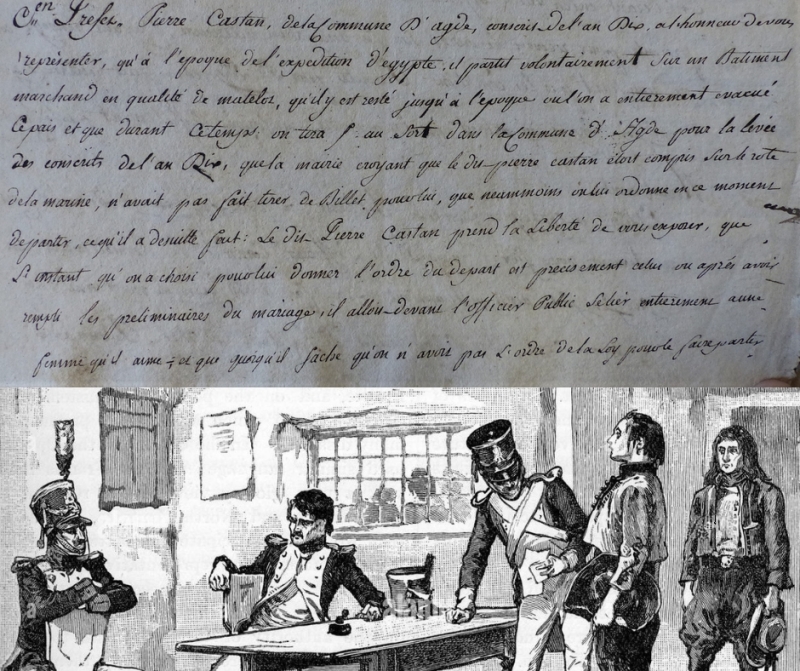 C.en Prefet. Pierre Castan, de la Commune D'agde, conscrit de l'an Dix, a l'honneur de vous
représenter, qu'à l'époque de l'expedition d'égypte, il partit volontairement sur un Batiment
marchand en qualité de matelot, qu'il y est resté jusqu'à l'epoque ou l'on a entierement evacué
Ce païs et que durant ce temps, on tira au sort dans la Commune d'Agde pour la levée
des conscrits de l'an Dix, que la mairie croyant que le dit pierre castan étoit compris sur le role
de la marine, n'avait pas fait tirer de Billet pour lui, que neammoins on lui ordonne en ce moment
de partir, ce qu'il a de suitte fait: Le dit Pierre Castan prend la Liberté de vous exposer, que
L'instant qu'on a choisi pour lui donner l'ordre du depart est precisement celui ou après avoir
rempli les preliminaires du mariage, il alloit devant l'officier Public Se lier entierement a une
femme qu'il aime, et que quoiqu'il sache qu'on n'avoit pas L'ordre de la Loy pour le faire partir